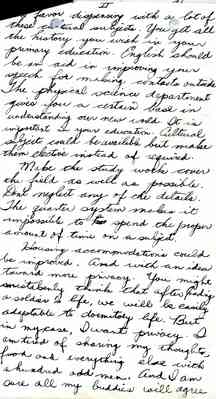 II
I favor dispensing with a lot of
these social subjects. You get all
the history you wish in your
primary education. English should
be an aid in improving your
speech for making contacts outside.
The physical science department
gives you a certain base in
understanding our new world. It is
important in your education. Cultural
subjects could be available but make
them elective instead of required.
Make the study work cover
the field as well as possible.
Dont neglect any of the details.
The quarter system makes it
impossible to spend the proper
amount of time on a subject.
Housing accomodations could
be improved. And with an idea
toward more privacy. You might
mistakenly think that after finding
a soldier's life, we will be easily
adaptable to dormitory life. But
in my case, I want privacy. I
am tired of sharing my thoughts,
food and everything else with
a hundred odd men. And I am
sure all my buddies will agree